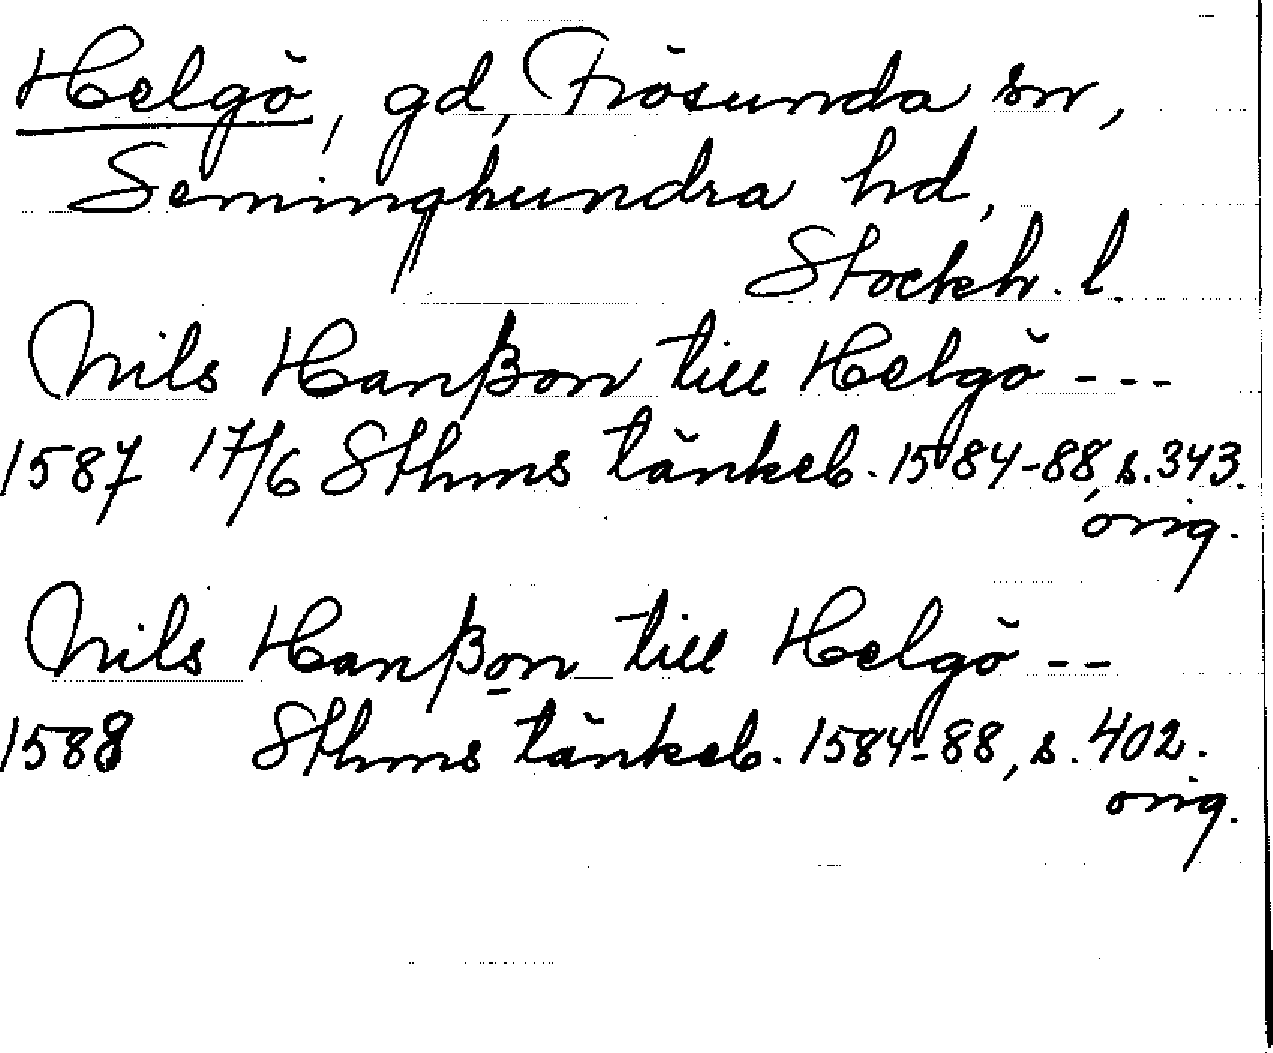 Helgö, gd, Frösunda sn,
Seminghundra hd,
Stockh. l.
Nils Hanßon till Helgö ---
1587 17/6 Sthms tänkeb. 1584-88, s. 343.
orig.
Nils Hanßon till Helgö --
1588 Sthms tänkeb. 1584-88, s. 402.
orig.